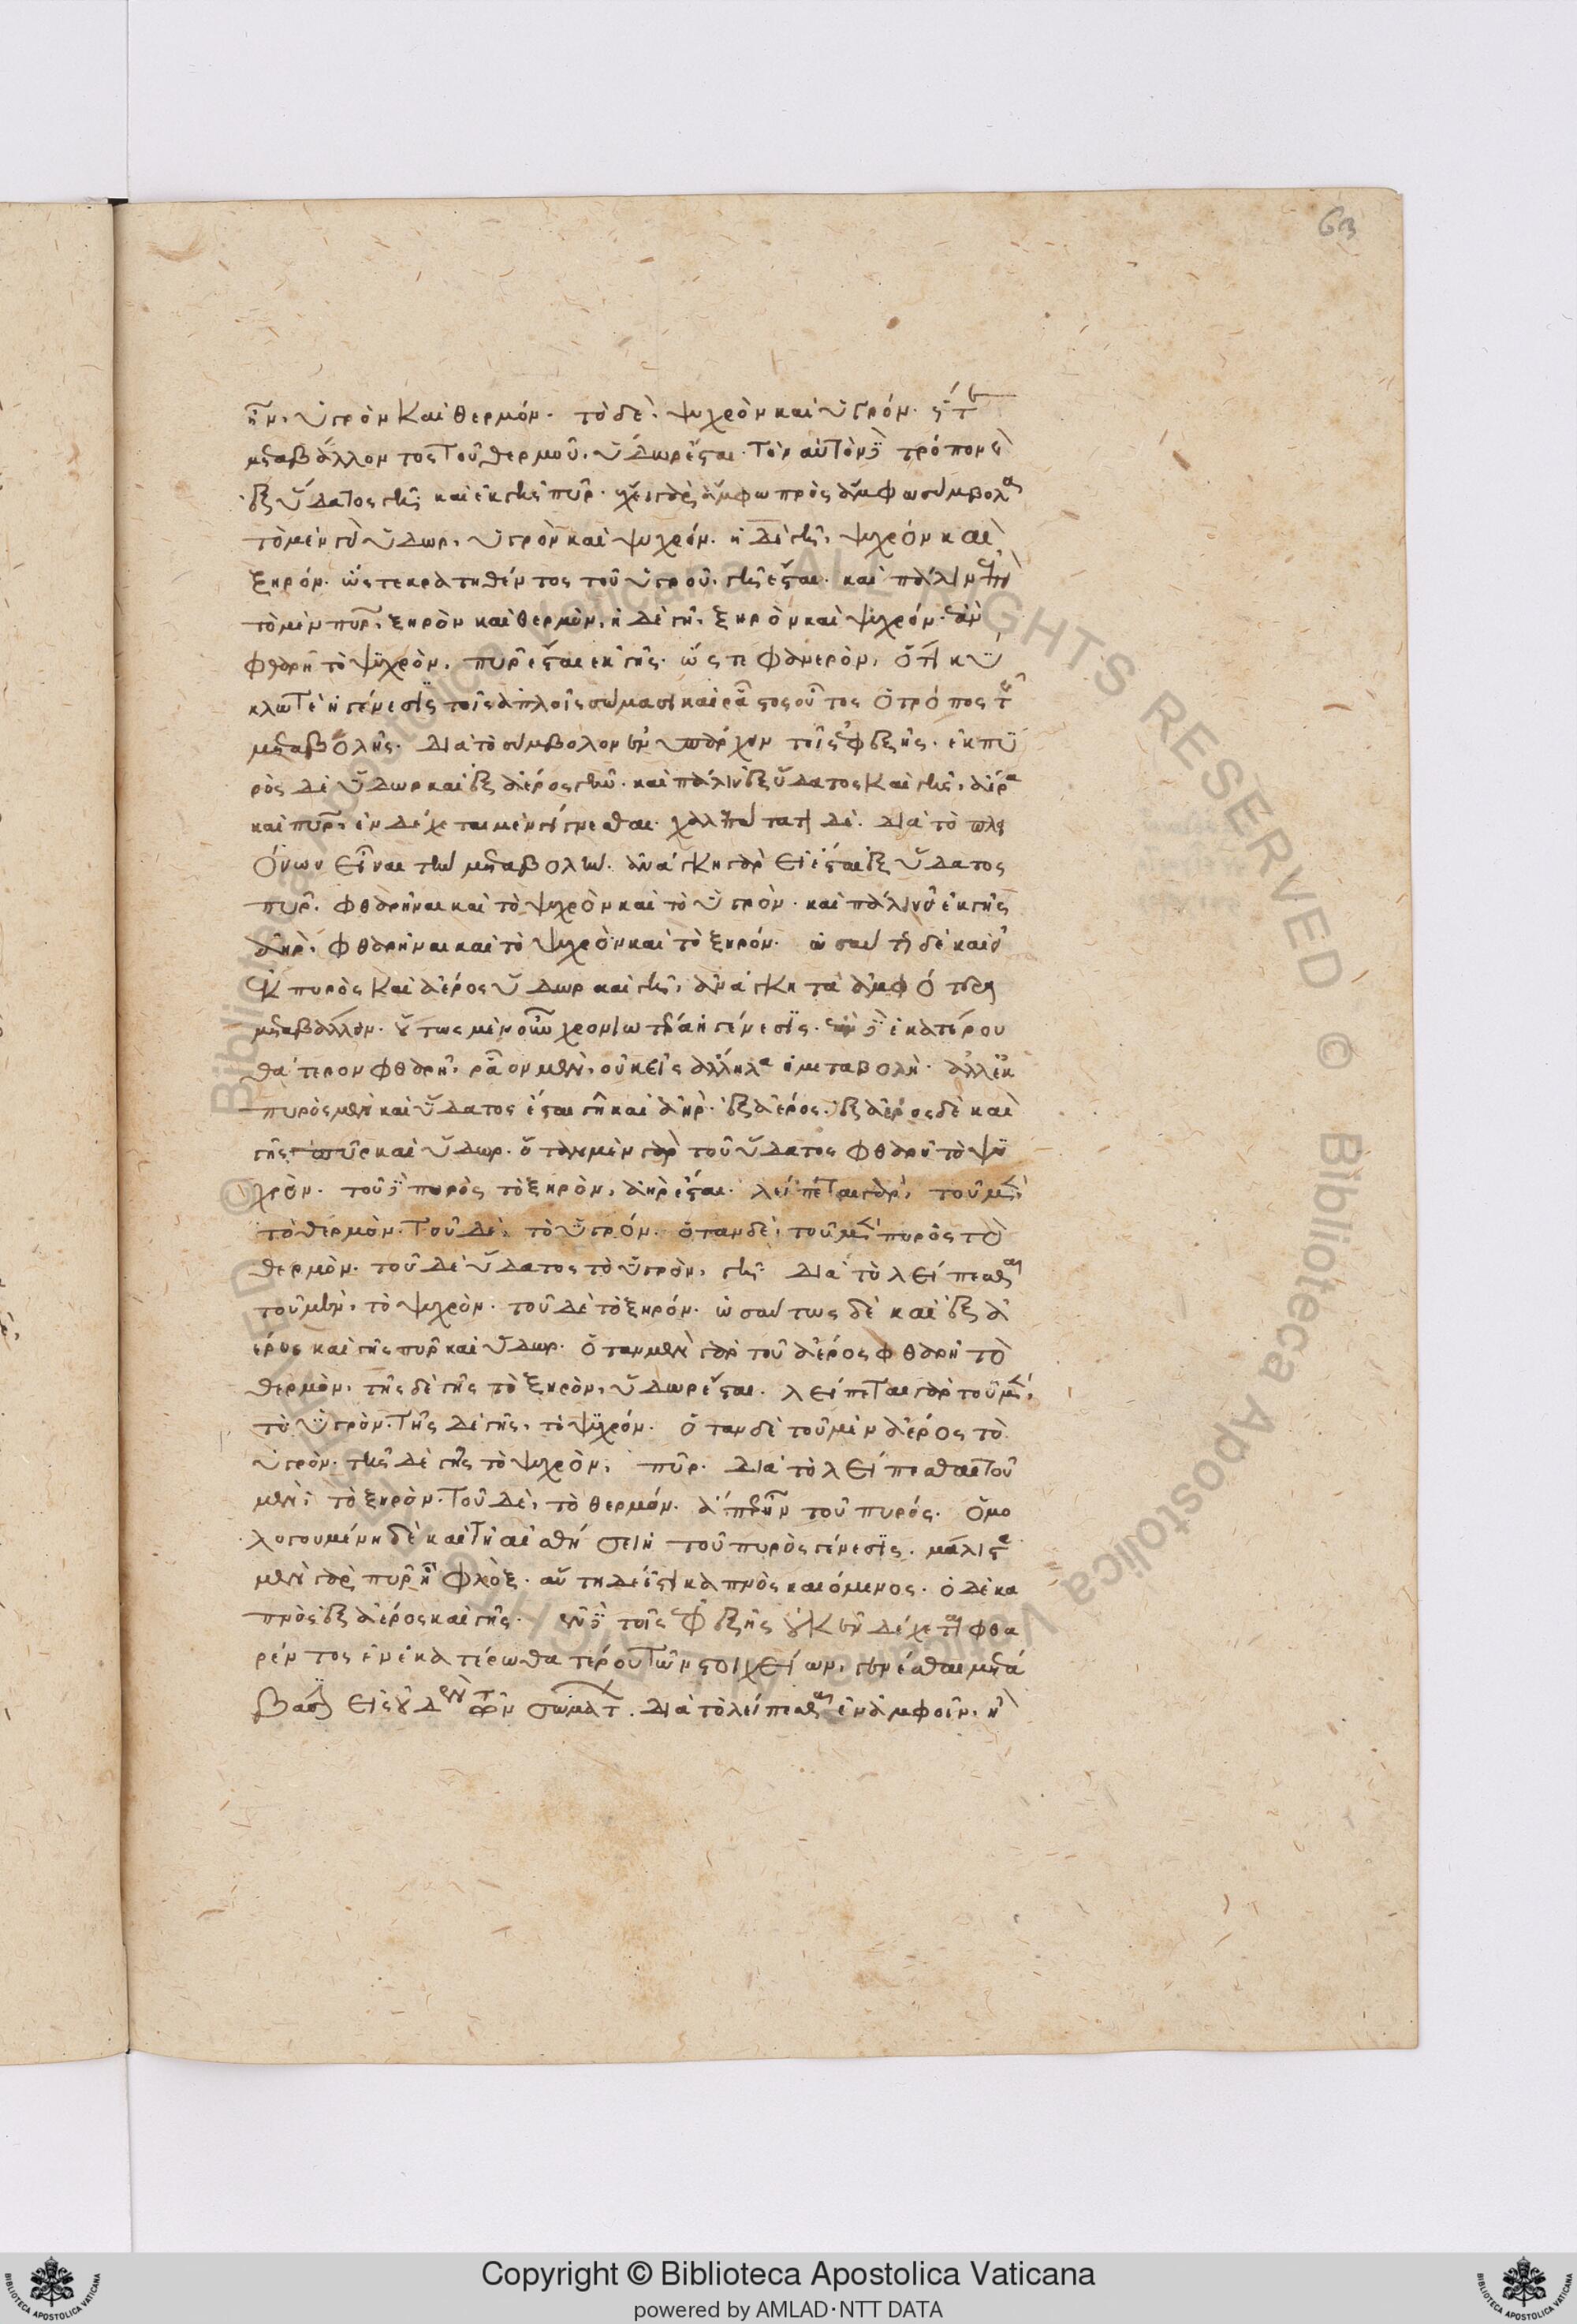 63
ἦν, ὑγρὸν καὶ θερμόν· τὸ δὲ, ψυχρὸν καὶ ὑγρόν·
μεταβάλλοντος τοῦ θερμοῦ, ὕδωρ ἔσται· τὸν αὐτὸν δὲ τρόπον καὶ
ἐξ ὕδατος γῆ· καὶ ἐκ γῆς πῦρ· ἔχει γὰρ ἄμφω πρὸς ἄμφω σύμβολα
τὸ μὲν γὰρ ὕδωρ, ὑγρὸν καὶ ψυχρόν· ἡ δὲ γῆ, ψυχρὸν καὶ
ξηρόν· ὥστε κρατηθέντος τοῦ ὑγροῦ, γῆ ἔσται· καὶ πάλιν ἐπεὶ
τὸ μὲν πῦρ, ξηρὸν καὶ θερμὸν, ἡ δὲ γῆ, ξηρὸν καὶ ψυχρόν· ἐὰν
φθαρῇ τὸ ψυχρὸν, πῦρ ἔσται ἐκ γῆς· ὥστε φανερὸν, ὅτι κύ
κλῳ τε ἡ γένεσις τοῖς ἁπλοῖς σώμασι καὶ ῥᾷστος οὗτος ὁ τρόπος τῆς
μεταβολῆς· διὰ τὸ σύμβολον ἐνυπάρχειν τοῖς ἐφεξῆς· ἐκ πυ
ρὸς δὲ ὕδωρ καὶ ἐξ ἀέρος γῆν· καὶ πάλιν ἐξ ὕδατος καὶ γῆς, ἀέρα
καὶ πῦρ, ἐνδέχεται μὲν γίνεσθαι· χαλεπώτατον δὲ· διὰ τὸ πλει
όνων εἶναι τὴν μεταβολήν· ἀνάγκη γὰρ εἰ ἔσται ἐξ ὕδατος
πῦρ· φθαρῆναι καὶ τὸ ψυχρὸν καὶ τὸ ὑγρὸν· καὶ πάλιν εἰ ἐκ γῆς
ἀὴρ, φθαρῆναι καὶ τὸ ψυχρὸν καὶ τὸ ξηρόν· ὡσαύτως δὲ καὶ εἰ
ἐκ πυρὸς καὶ ἀέρος ὕδωρ καὶ γῆ, ἀνάγκη τὰ ἀμφότερα
μεταβάλλειν· οὕτως μὲν οὖν χρονιωτέρα ἡ γένεσις· ἐὰν δὲ ἑκατέρου
θάτερον φθαρῇ, ῥᾷον μὲν, οὐκ εἰς ἄλληλα ἡ μεταβολὴ· ἀλλ' ἐκ
πυρὸς μὲν καὶ ὕδατος ἔσται γῆ καὶ ἀὴρ· ἐξ ἀέρος· ἐξ ἀέρος δὲ καὶ
γῆς πῦρ καὶ ὕδωρ· ὅταν μὲν γὰρ τοῦ ὕδατος φθαρῇ τὸ ψυ
χρὸν· τοῦ δὲ πυρὸς τὸ ξηρὸν, ἀὴρ ἔσται· λείπεται γὰρ, τοῦ μὲν,
τὸ θερμὸν· τοῦ δὲ, τὸ ὑγρόν· ὅταν δὲ, τοῦ μὲν πυρὸς τὸ
θερμὸν· τοῦ δὲ ὕδατος τὸ ὑγρὸν, γῆ· διὰ τὸ λείπεσθαι
τοῦ μὲν, τὸ ψυχρὸν· τοῦ δὲ τὸ ξηρόν· ὡσαύτως δὲ καὶ ἐξ ἀ
έρος καὶ γῆς πῦρ καὶ ὕδωρ· ὅταν μὲν γὰρ τοῦ ἀέρος φθαρῇ τὸ
θερμὸν, τῆς δὲ γῆς τὸ ξηρὸν, ὕδωρ ἔσται· λείπεται γὰρ τοῦ μὲν,
τὸ ὑγρὸν· τῆς δὲ γῆς, τὸ ψυχρόν· ὅταν δὲ τοῦ μὲν ἀέρος τὸ
ὑγρὸν· τῆς δὲ γῆς τὸ ψυχρὸν, πῦρ· διὰ τὸ λείπεσθαι τοῦ
μὲν, τὸ ξηρὸν· τοῦ δὲ, τὸ θερμόν· ἅπερ ἦν τοῦ πυρός· ὁμο
λογουμένη δὲ καὶ τῇ αἰσθήσει ἡ τοῦ πυρὸς γένεσις· μάλιστα
μὲν γὰρ πῦρ ἡ φλὸξ· αὕτη δέ ἐστι καπνὸς καιόμενος· ὁ δὲ κα
πνὸς ἐξ ἀέρος καὶ γῆς· ἐν δὲ τοῖς ἐφεξῆς οὐκ ἐνδέχεται φθα
ρέντος ἐν ἑκατέρῳ θατέρου τῶν στοιχείων, γενέσθαι μετά
βασιν εἰς οὐδὲν τῶν σωμάτων· διὰ τὸ λείπεσθαι ἐν ἀμφοῖν, ἢ
Copyright © Biblioteca Apostolica Vaticana
powered by AMLAD·NTT DATA
© Biblioteca Apostolica Vaticana ALL RIGHTS RESERVED
BIBLIOTECA APOSTOLICA VATICANA
BIBLIOTECA APOSTOLICA VATICANA